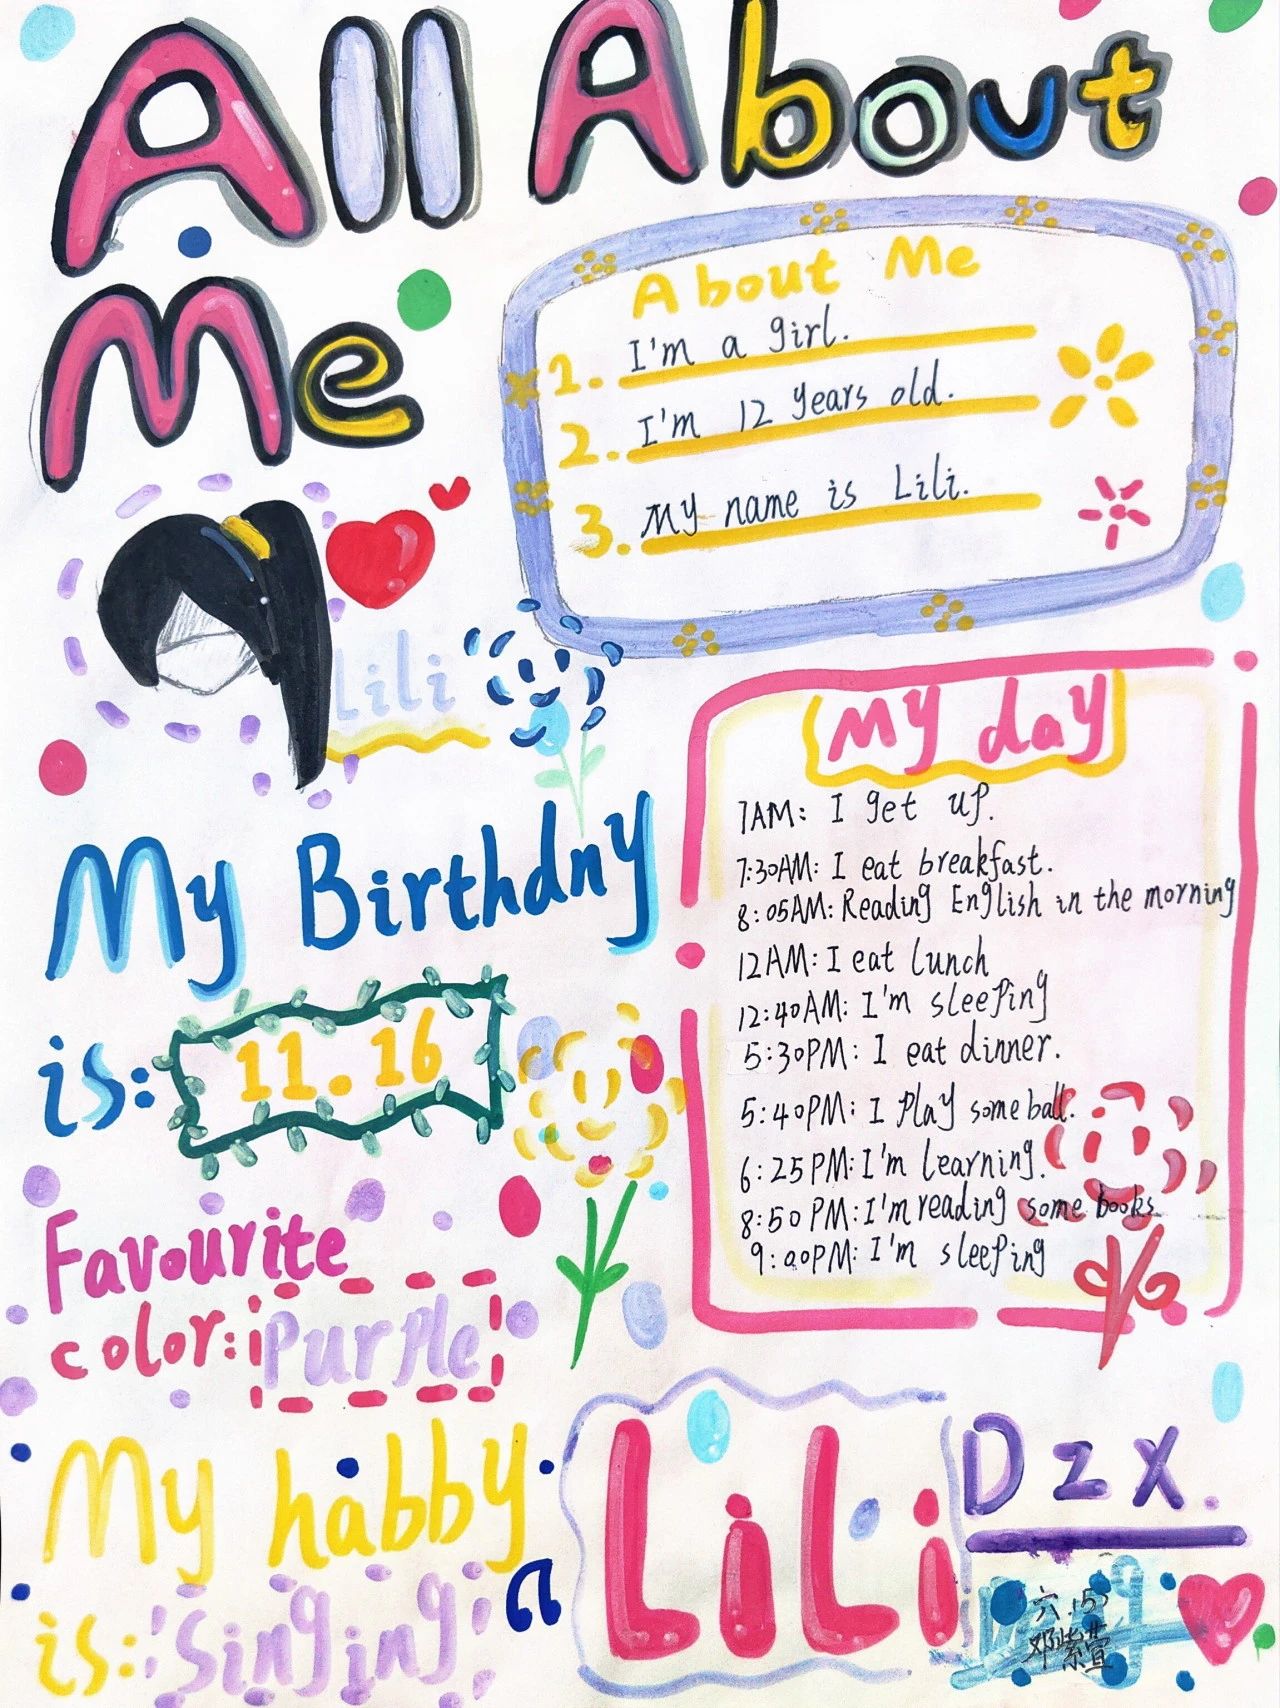 All About
Me
About Me
1. I'm a girl.
2. I'm 12 years old.
3. My name is Lili.
Lili
My day
7AM: I get up.
7:30AM: I eat breakfast.
8:05AM: Reading English in the morning
12AM: I eat lunch
12:40AM: I'm sleeping
5:30PM: I eat dinner.
5:40PM: I play some ball.
6:25PM: I'm learning.
8:50PM: I'm reading some books
9:00PM: I'm sleeping
My Birthdny
is: 11.16
Favourite
color: Purple
My habby
is: Singing
LiLi
Dzx
六.(5)
邓紫萱